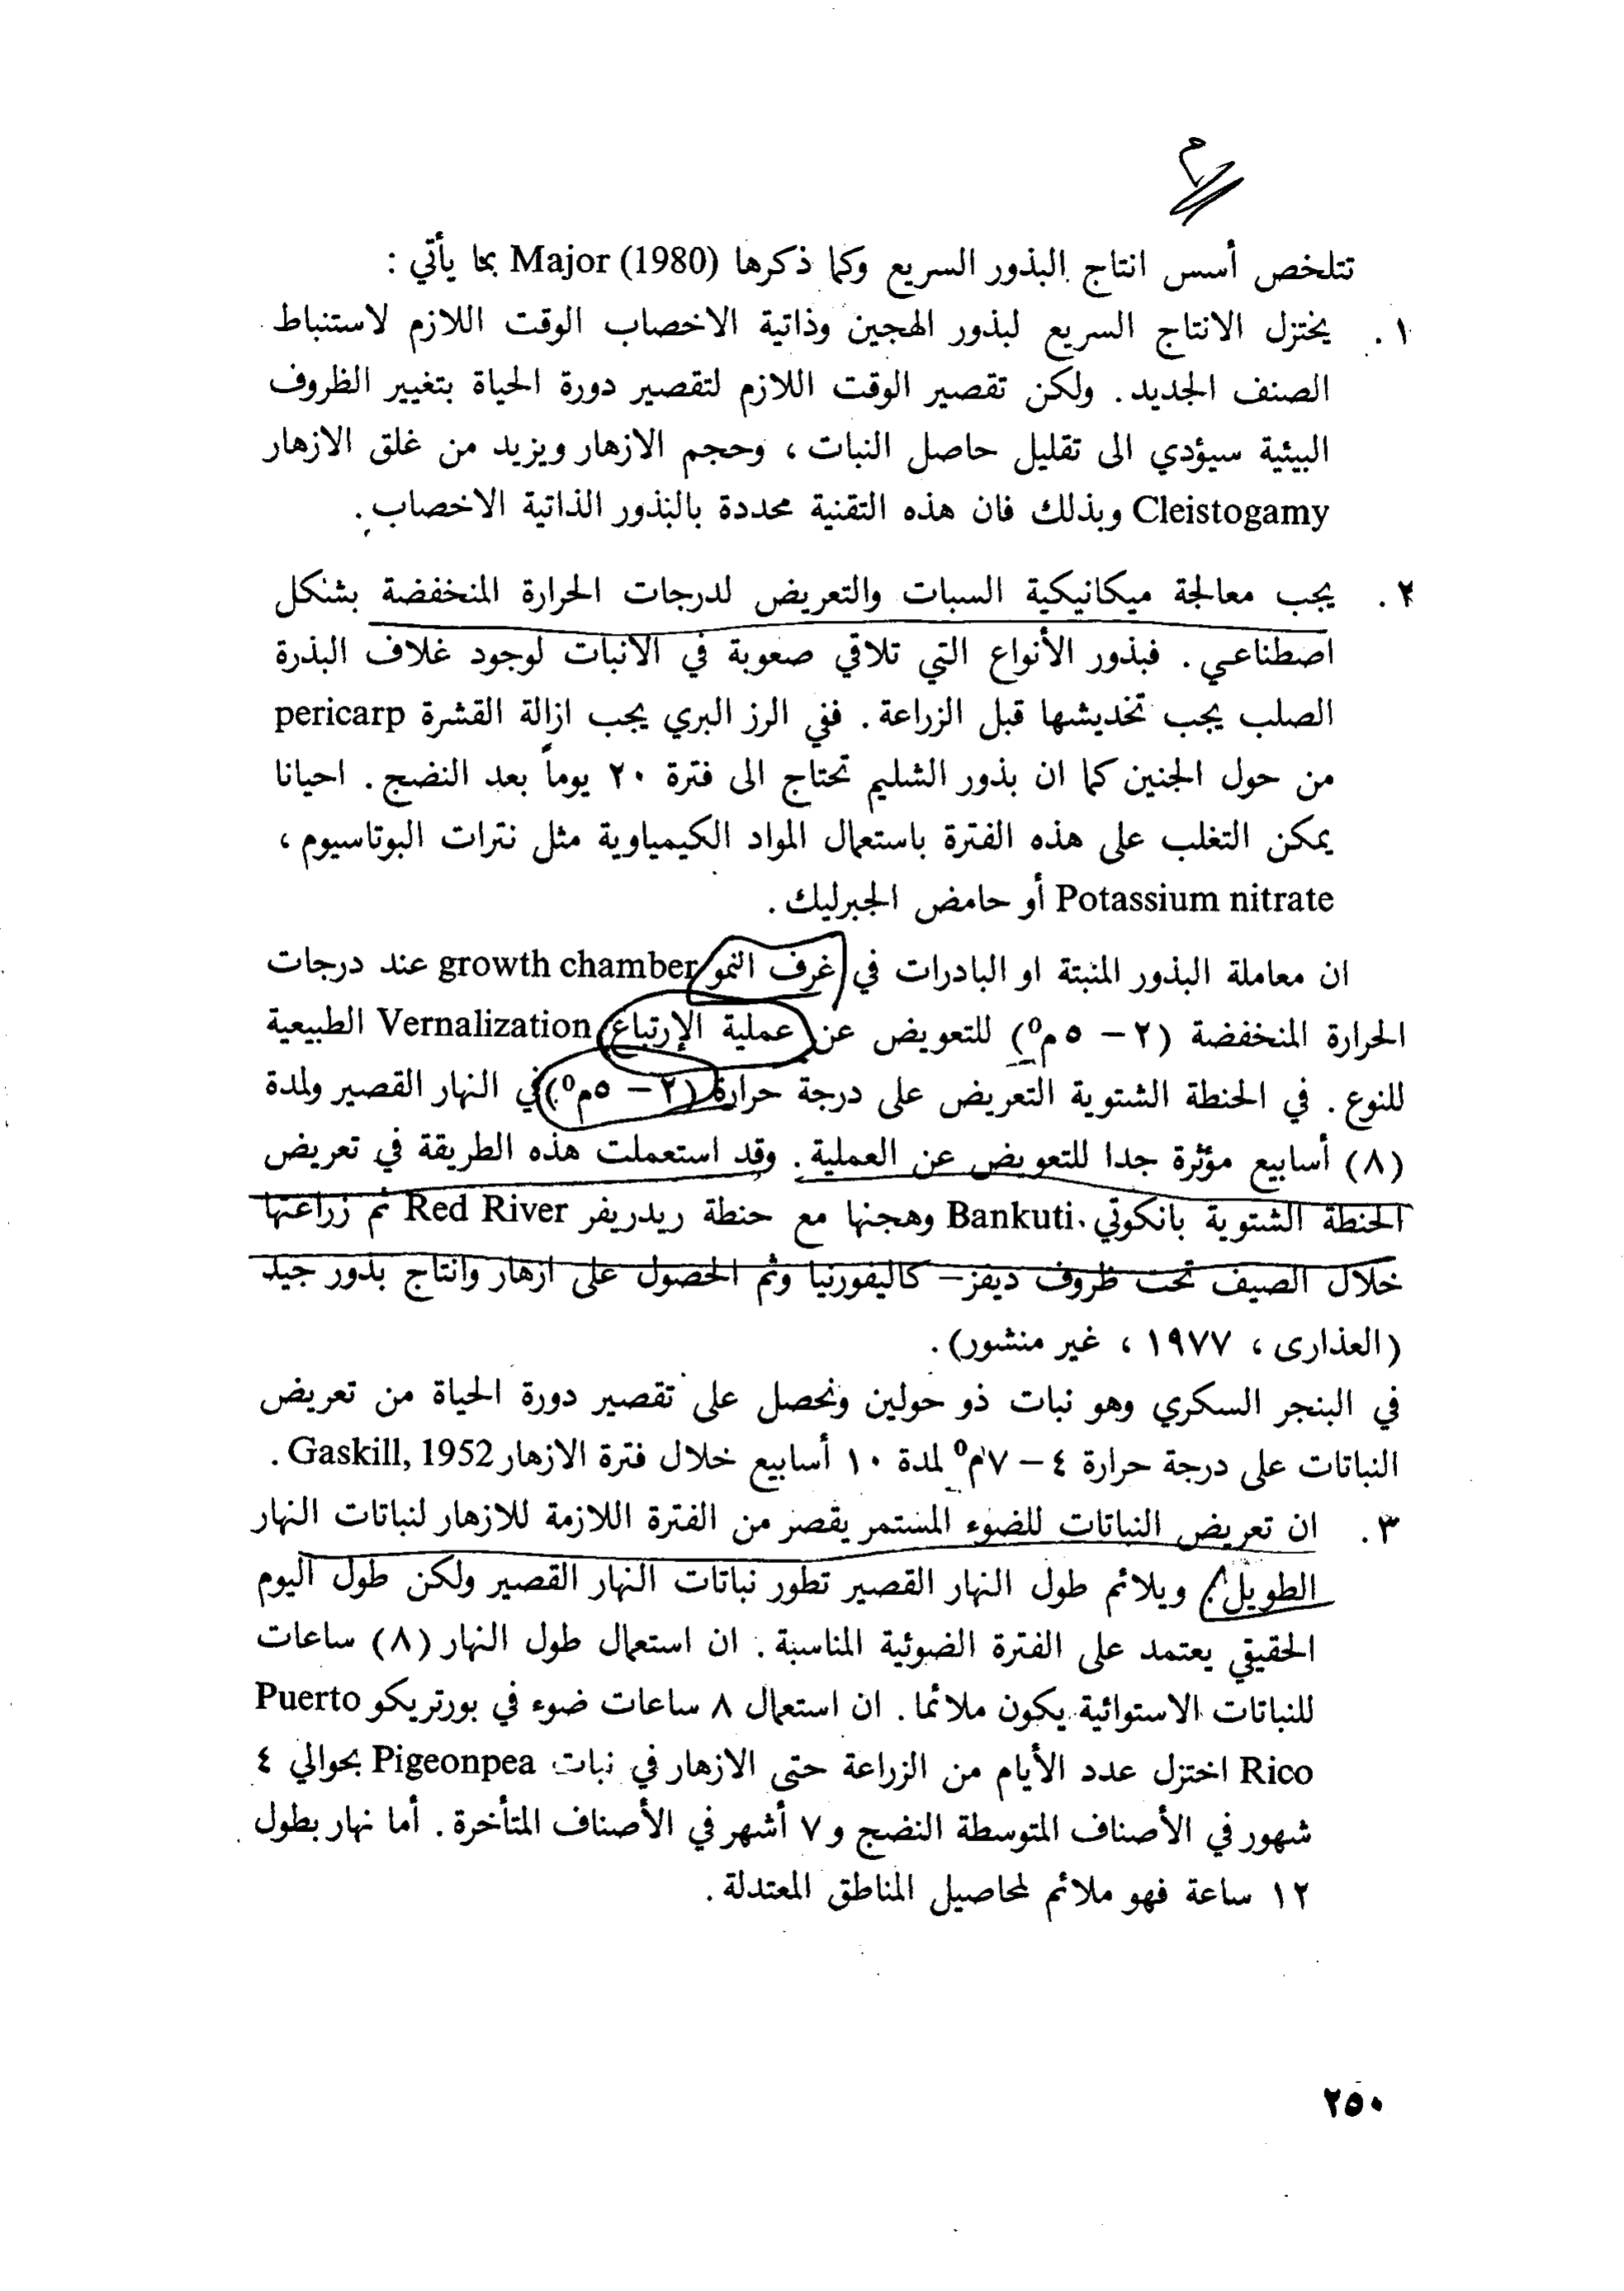 تتلخص أسس انتاج البذور السريع وكما ذكرها Major (1980) بما يأتي :
١ . يختزل الانتاج السريع لبذور الهجين وذاتية الاخصاب الوقت اللازم لاستنباط
الصنف الجديد . ولكن تقصير الوقت اللازم لتقصير دورة الحياة بتغيير الظروف
البيئية سيؤدي الى تقليل حاصل النبات ، وحجم الازهار ويزيد من غلق الازهار
Cleistogamy وبذلك فان هذه التقنية محددة بالبذور الذاتية الاخصاب .
٢ . يجب معالجة ميكانيكية السبات والتعريض لدرجات الحرارة المنخفضة بشكل
اصطناعي . فبذور الأنواع التي تلاقي صعوبة في الانبات لوجود غلاف البذرة
الصلب يجب تخديشها قبل الزراعة . ففي الرز البري يجب ازالة القشرة pericarp
من حول الجنين كما ان بذور الشليم تحتاج الى فترة ٢٠ يوماً بعد النضج . احيانا
يمكن التغلب على هذه الفترة باستعمال المواد الكيمياوية مثل نترات البوتاسيوم ،
Potassium nitrate أو حامض الجبرليك .
ان معاملة البذور المنبتة او البادرات في غرف النمو growth chamber عند درجات
الحرارة المنخفضة (٢ – ٥ م⁰) للتعويض عن عملية الإرتباع Vernalization الطبيعية
للنوع . في الحنطة الشتوية التعريض على درجة حرارة (٢ – ٥م⁰) في النهار القصير ولمدة
(٨) أسابيع مؤثرة جدا للتعويض عن العملية . وقد استعملت هذه الطريقة في تعريض
الحنطة الشتوية بانكوتي Bankuti وهجنها مع حنطة ريدريفر Red River ثم زراعتها
خلال الصيف تحت ظروف ديفز – كاليفورنيا وثم الحصول على ازهار وانتاج بذور جيد
(العذارى ، ١٩٧٧ ، غير منشور) .
في البنجر السكري وهو نبات ذو حولين ونحصل على تقصير دورة الحياة من تعريض
النباتات على درجة حرارة ٤ – ٧م⁰ لمدة ١٠ أسابيع خلال فترة الازهار Gaskill, 1952 .
٣ . ان تعريض النباتات للضوء المستمر يقصر من الفترة اللازمة للازهار لنباتات النهار
الطويل . ويلائم طول النهار القصير تطور نباتات النهار القصير ولكن طول اليوم
الحقيقي يعتمد على الفترة الضوئية المناسبة . ان استعمال طول النهار (٨) ساعات
للنباتات الاستوائية يكون ملائما . ان استعمال ٨ ساعات ضوء في بورتريكو Puerto
Rico اختزل عدد الأيام من الزراعة حتى الازهار في نبات Pigeonpea بحوالي ٤
شهور في الأصناف المتوسطة النضج و ٧ أشهر في الأصناف المتأخرة . أما نهار بطول
١٢ ساعة فهو ملائم لمحاصيل المناطق المعتدلة .
٢٥٠